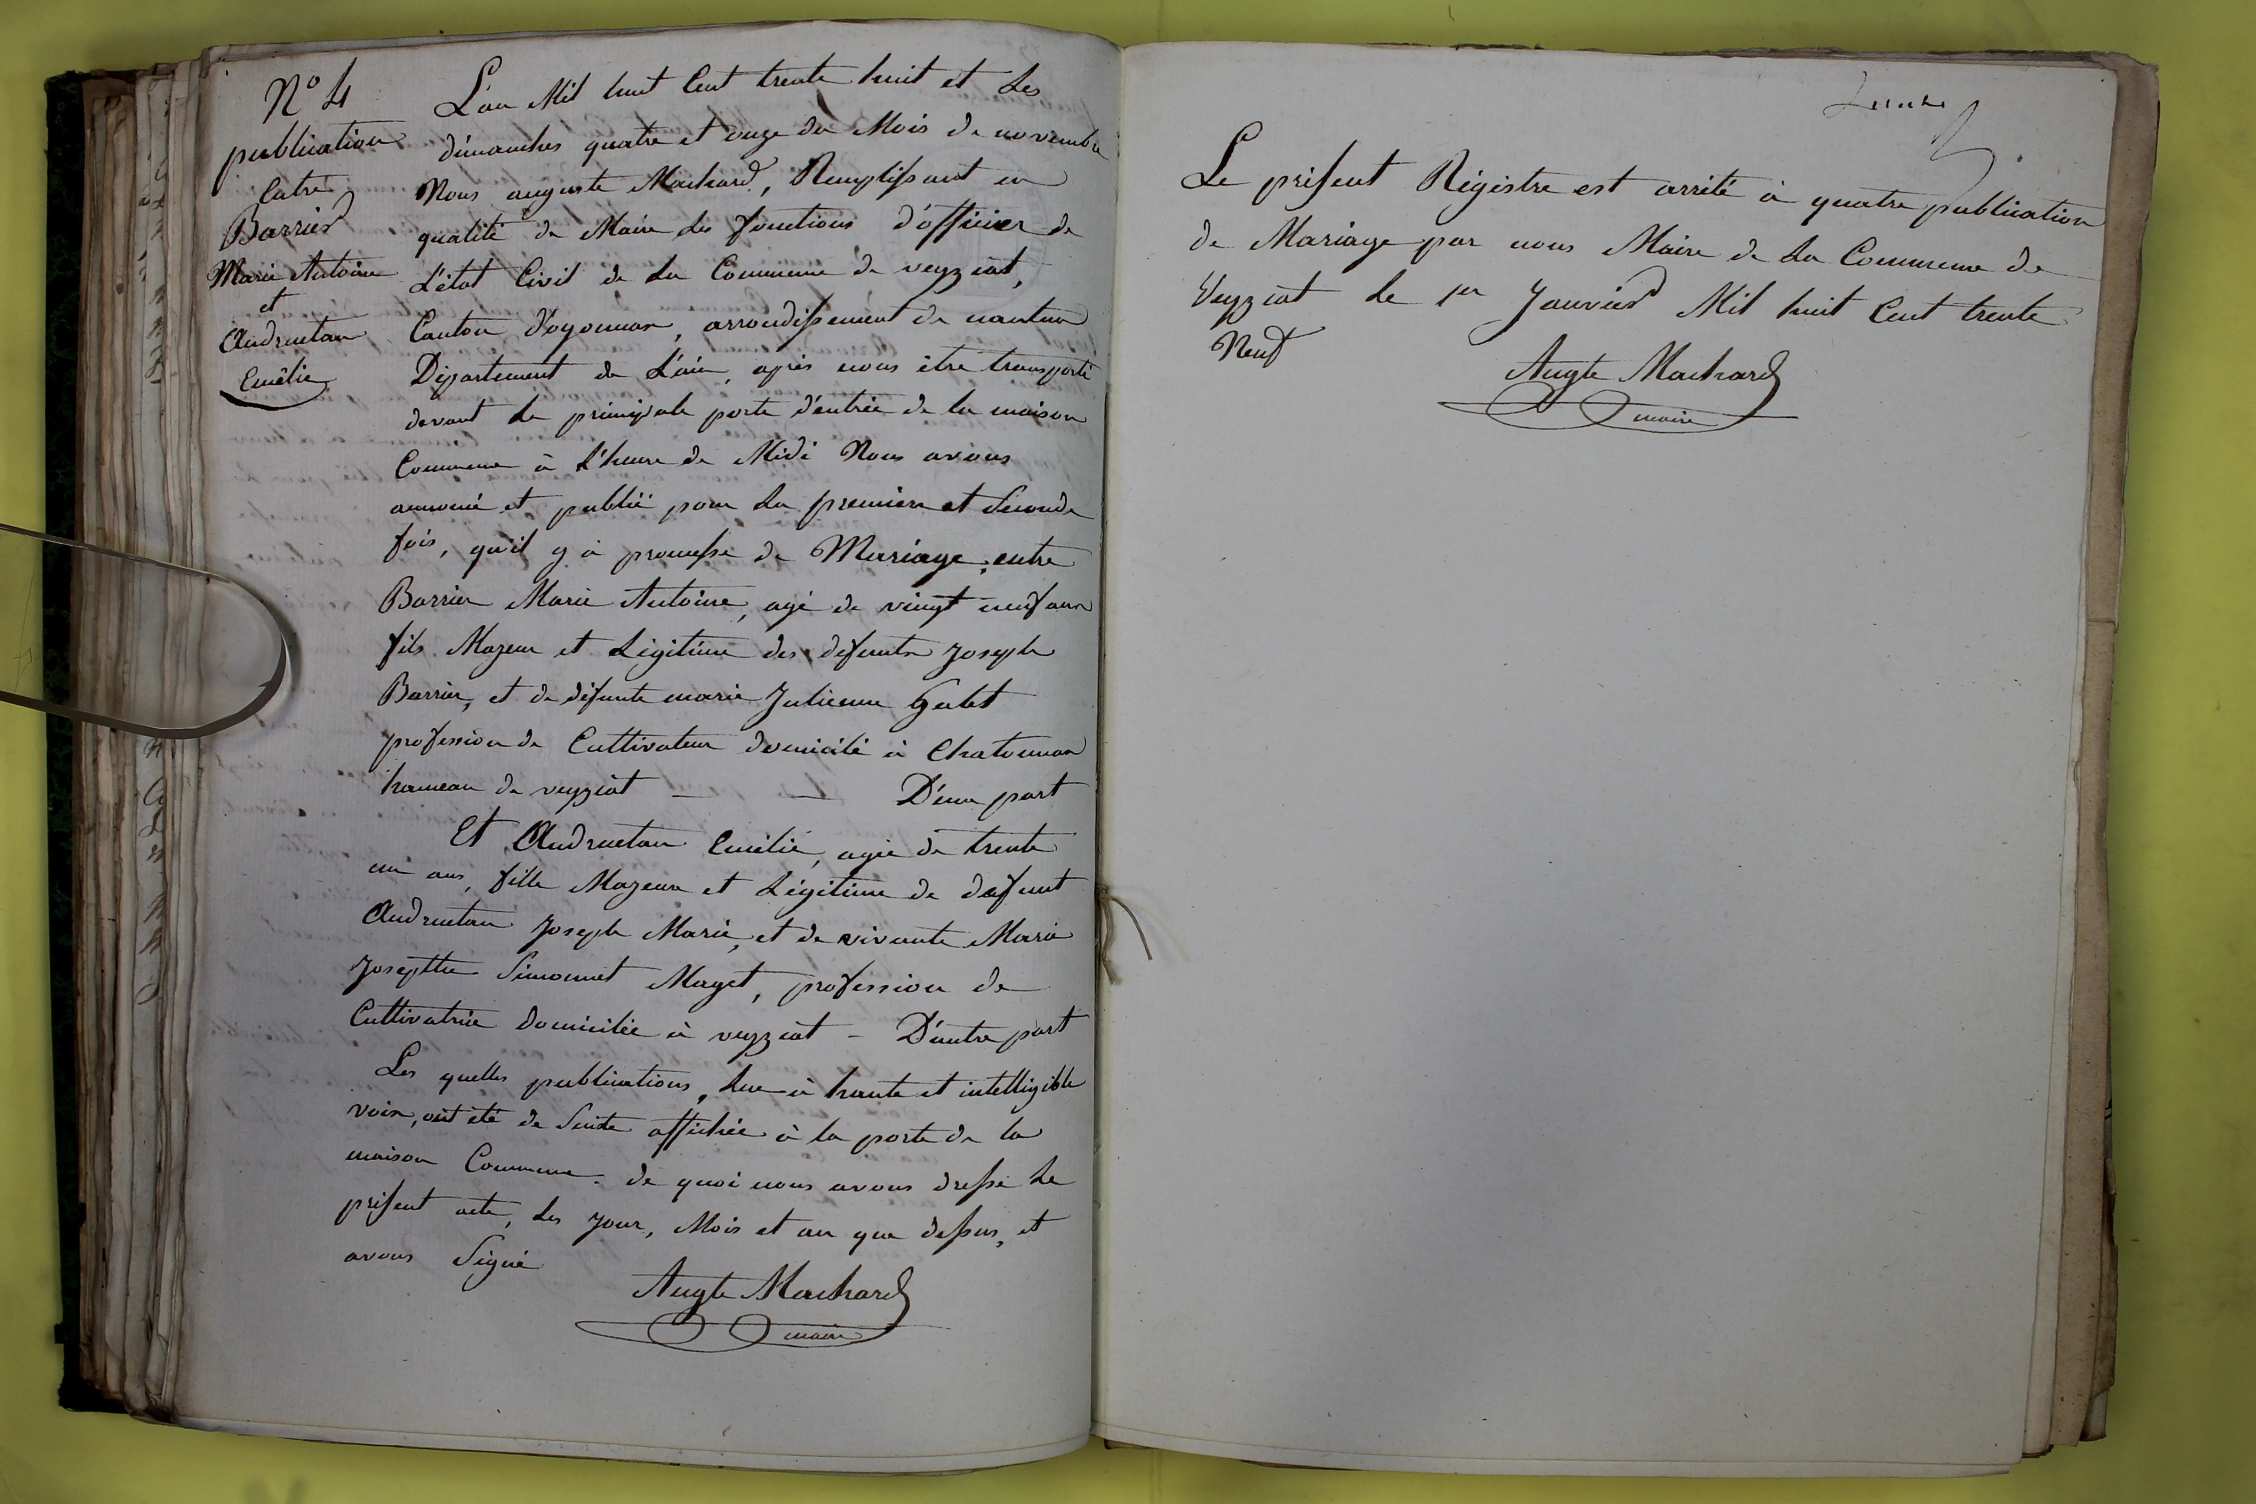 N° 4
publication
Entre
Barrier
Marie Antoine
et
Andruetan
Emélie
L'an Mil huit Cent trente huit et Les
dimanches quatre et onze du Mois de novembre
Nous auguste Machard, Remplissant en
qualité de Maire les fonctions d'officier de
L'état Civil de La Commune de veyziat,
Canton d'oyonnax, arrondissement de nantua
Département de L'ain, après nous être transporté
devant La principale porte d'entrée de la maison
Commune à L'heure de Midi Nous avons
annoncé et publié pour La première et Seconde
fois, qu'il y à promesse de Mariage, entre
Barrier Marie Antoine, agé de vingt neuf ans
fils Majeur et Légitime des défunts Joseph
Barrier, et de défunte marie Julienne Gulet
profession de Cultivateur domicilié à Chatonnax
hameau de veyziat — — D'une part
Et Andruetan Emélie, agée de trente
un ans, fille Majeure et Légitime de défunt
Andruetan Joseph Marie, et de vivante Marie
Josephte Simonnet Maget, profession de
Cultivatrice domiciliée à veyziat - D'autre part
Les quelles publications, Lue à haute et intelligible
voix, ont été de Suite affichée à la porte de la
maison Commune. de quoi nous avons dressé Le
présent acte, Les Jour, Mois et an que dessus, et
avons Signé
Augte Machard
maire
Le présent Régistre est arrité à quatre publication
de Mariage par nous Maire de La Commune de
Veyziat Le 1er Janvier Mil huit Cent trente
Neuf
Augte Machard
maire